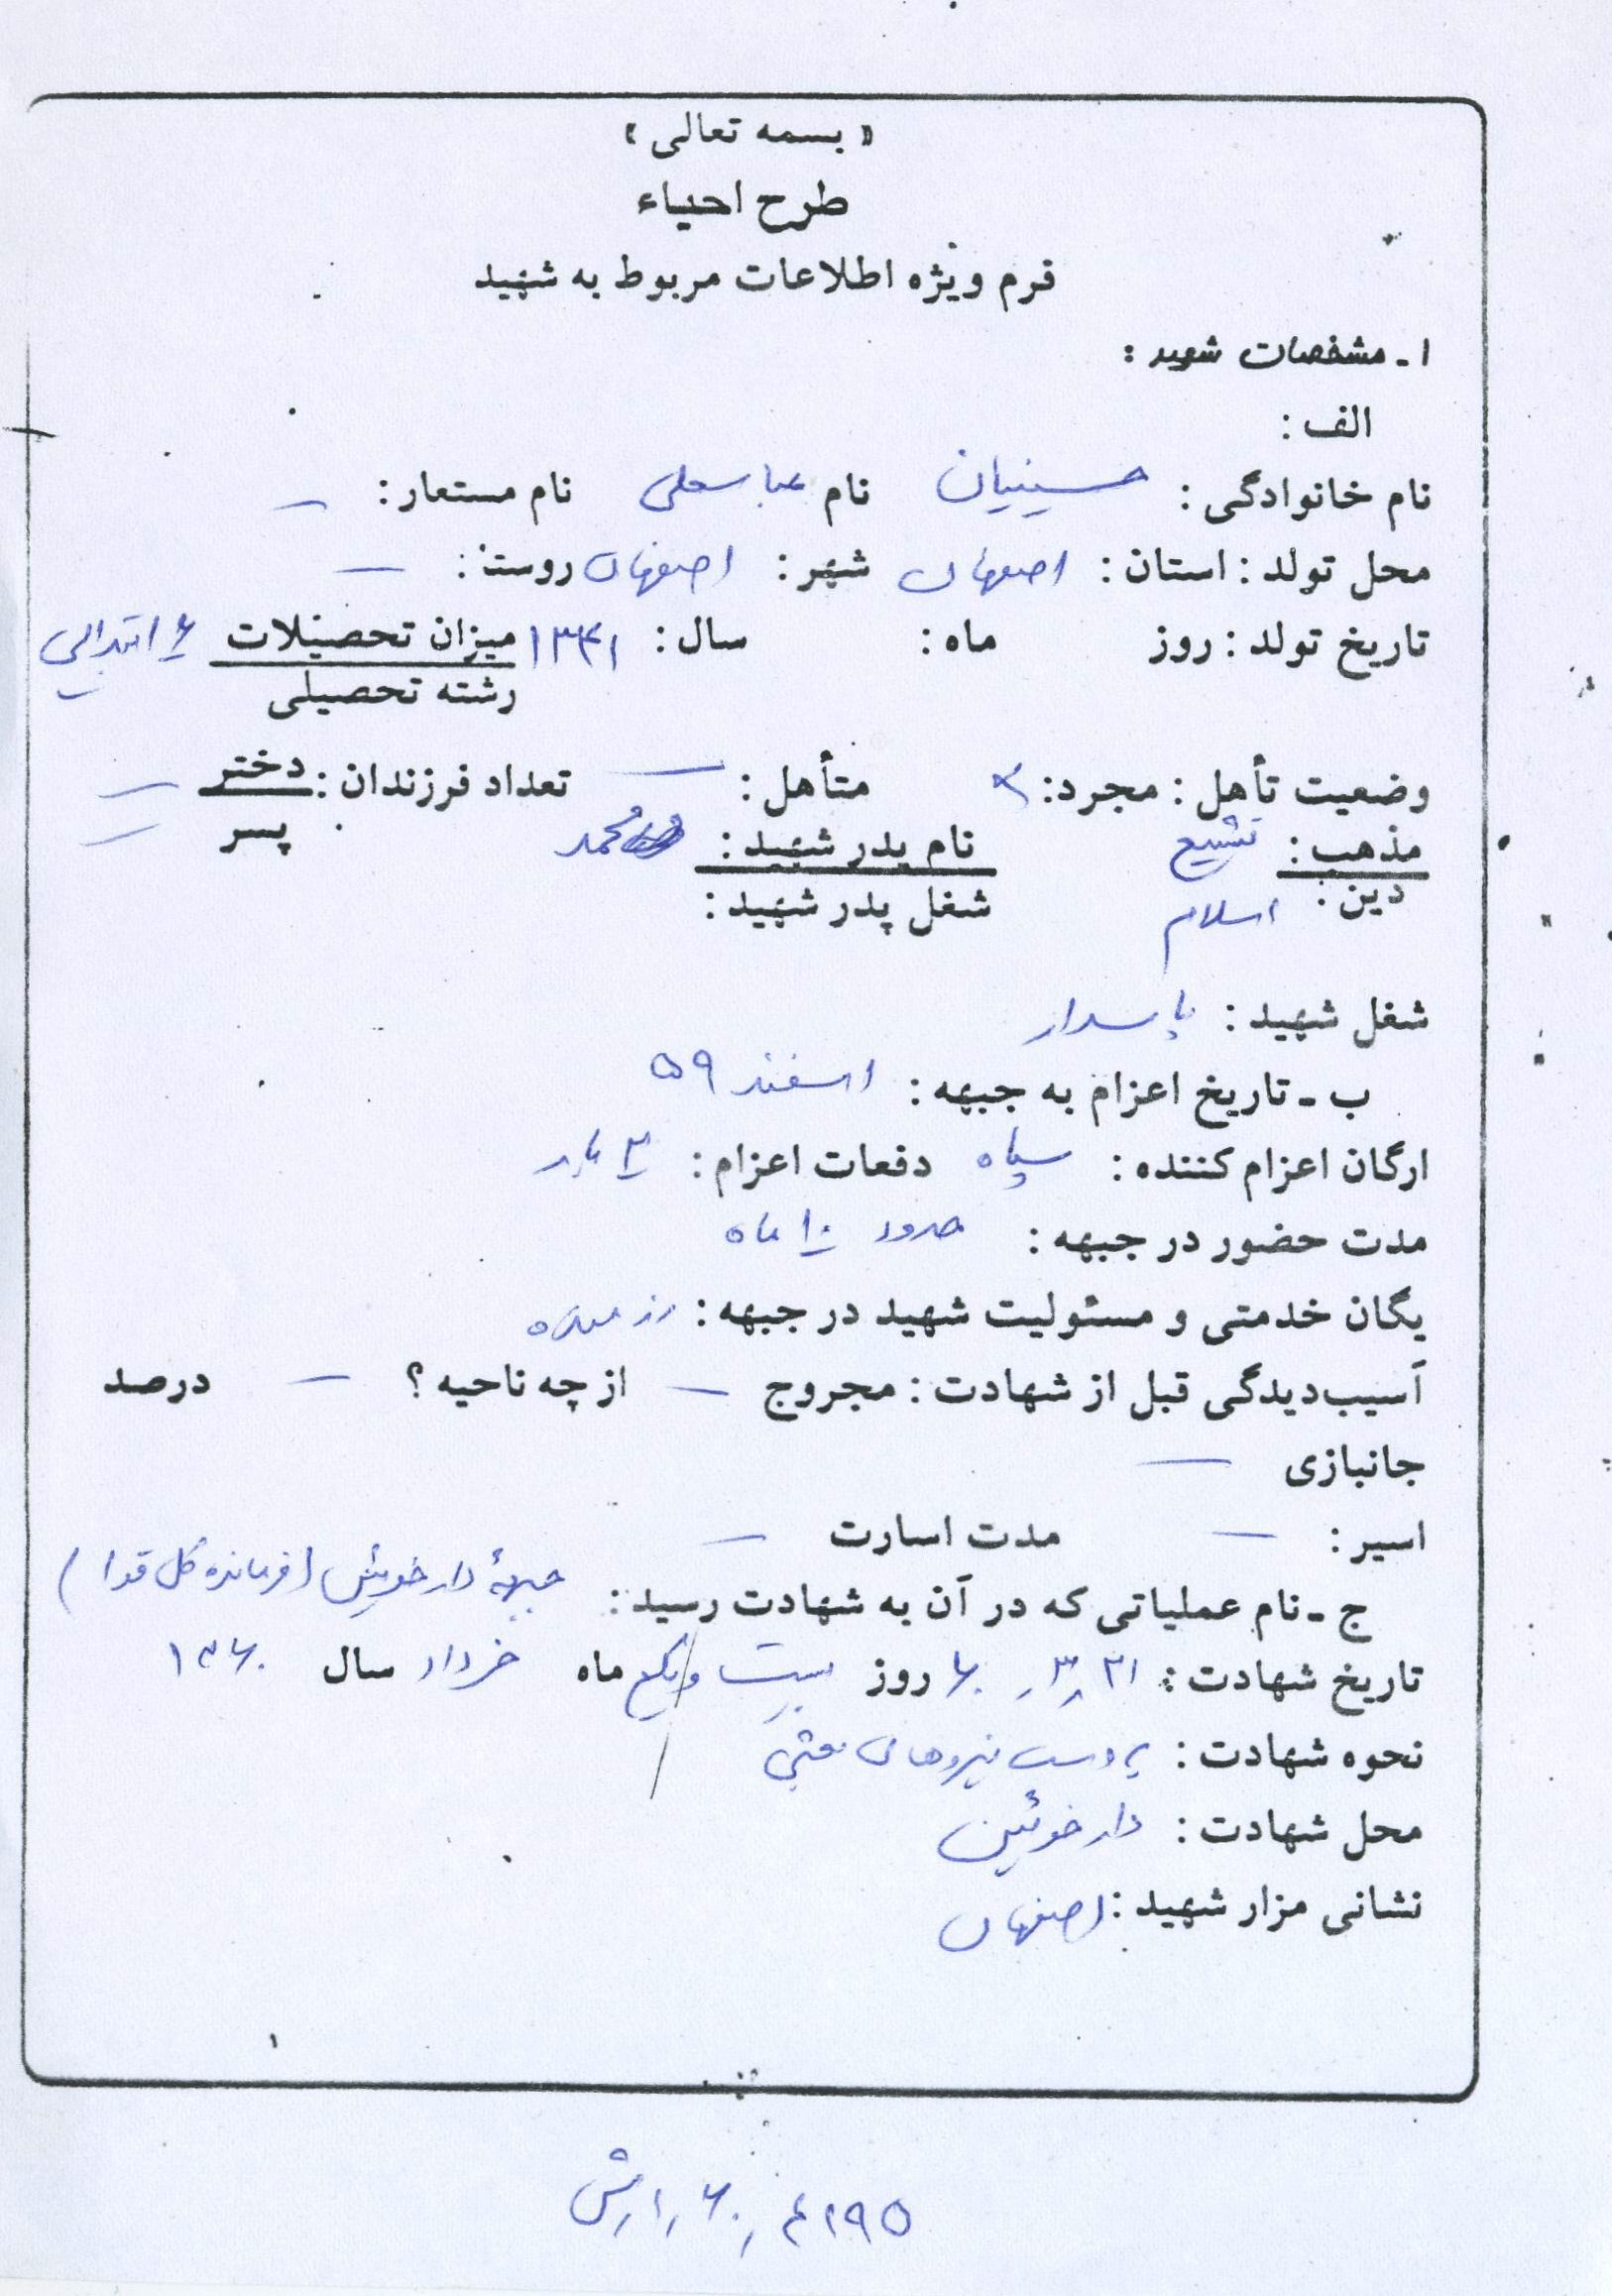 « بسمه تعالی »
طرح احیاء
فرم ویژه اطلاعات مربوط به شهید
۱ـ مشخصات شهید :
الف :
نام خانوادگی : حسینیان نام عباسعلی نام مستعار : —
محل تولد : استان : اصفهان شهر : اصفهان روستا : —
تاریخ تولد : روز ماه : سال : ۱۳۴۱ میزان تحصیلات ۶ ابتدایی
رشته تحصیلی
وضعیت تأهل : مجرد : × متأهل : — تعداد فرزندان : دختر —
پسر —
مذهب : تشیع نام پدر شهید : محمد
دین : اسلام شغل پدر شهید :
شغل شهید : پاسدار
ب ـ تاریخ اعزام به جبهه : اسفند ۵۹
ارگان اعزام کننده : سپاه دفعات اعزام : بار
مدت حضور در جبهه : حدود ۱۰ ماه
یگان خدمتی و مسئولیت شهید در جبهه : رزمنده
آسیب‌دیدگی قبل از شهادت : مجروح — از چه ناحیه ؟ — درصد
جانبازی —
اسیر : — مدت اسارت —
ج ـ نام عملیاتی که در آن به شهادت رسید : جبهۀ دارخوئین (فرمانده کل قوا)
تاریخ شهادت : ۲۱ ر ۳ ر ۶۰ روز بیست و یکم ماه خرداد سال ۱۳۶۰
نحوه شهادت : به دست نیروهای بعثی
محل شهادت : دارخوئین
نشانی مزار شهید : اصفهان
۱